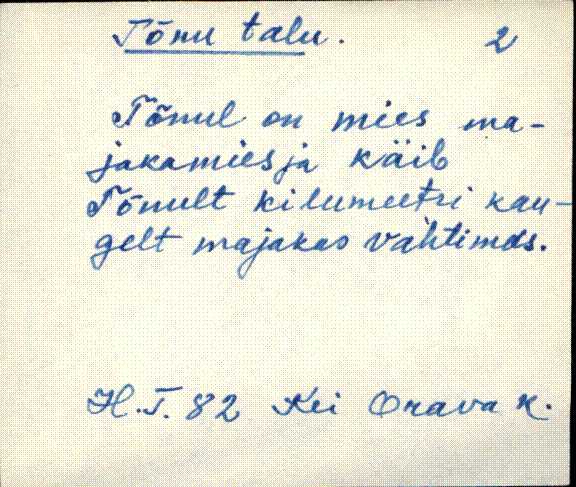 Tõnu talu. 2
Tõnul on mies ma-
jakamies ja käib
Tõnult kilumeetri kau-
gelt majakas vahtimas.
H.T. 82 Kei Orava k.